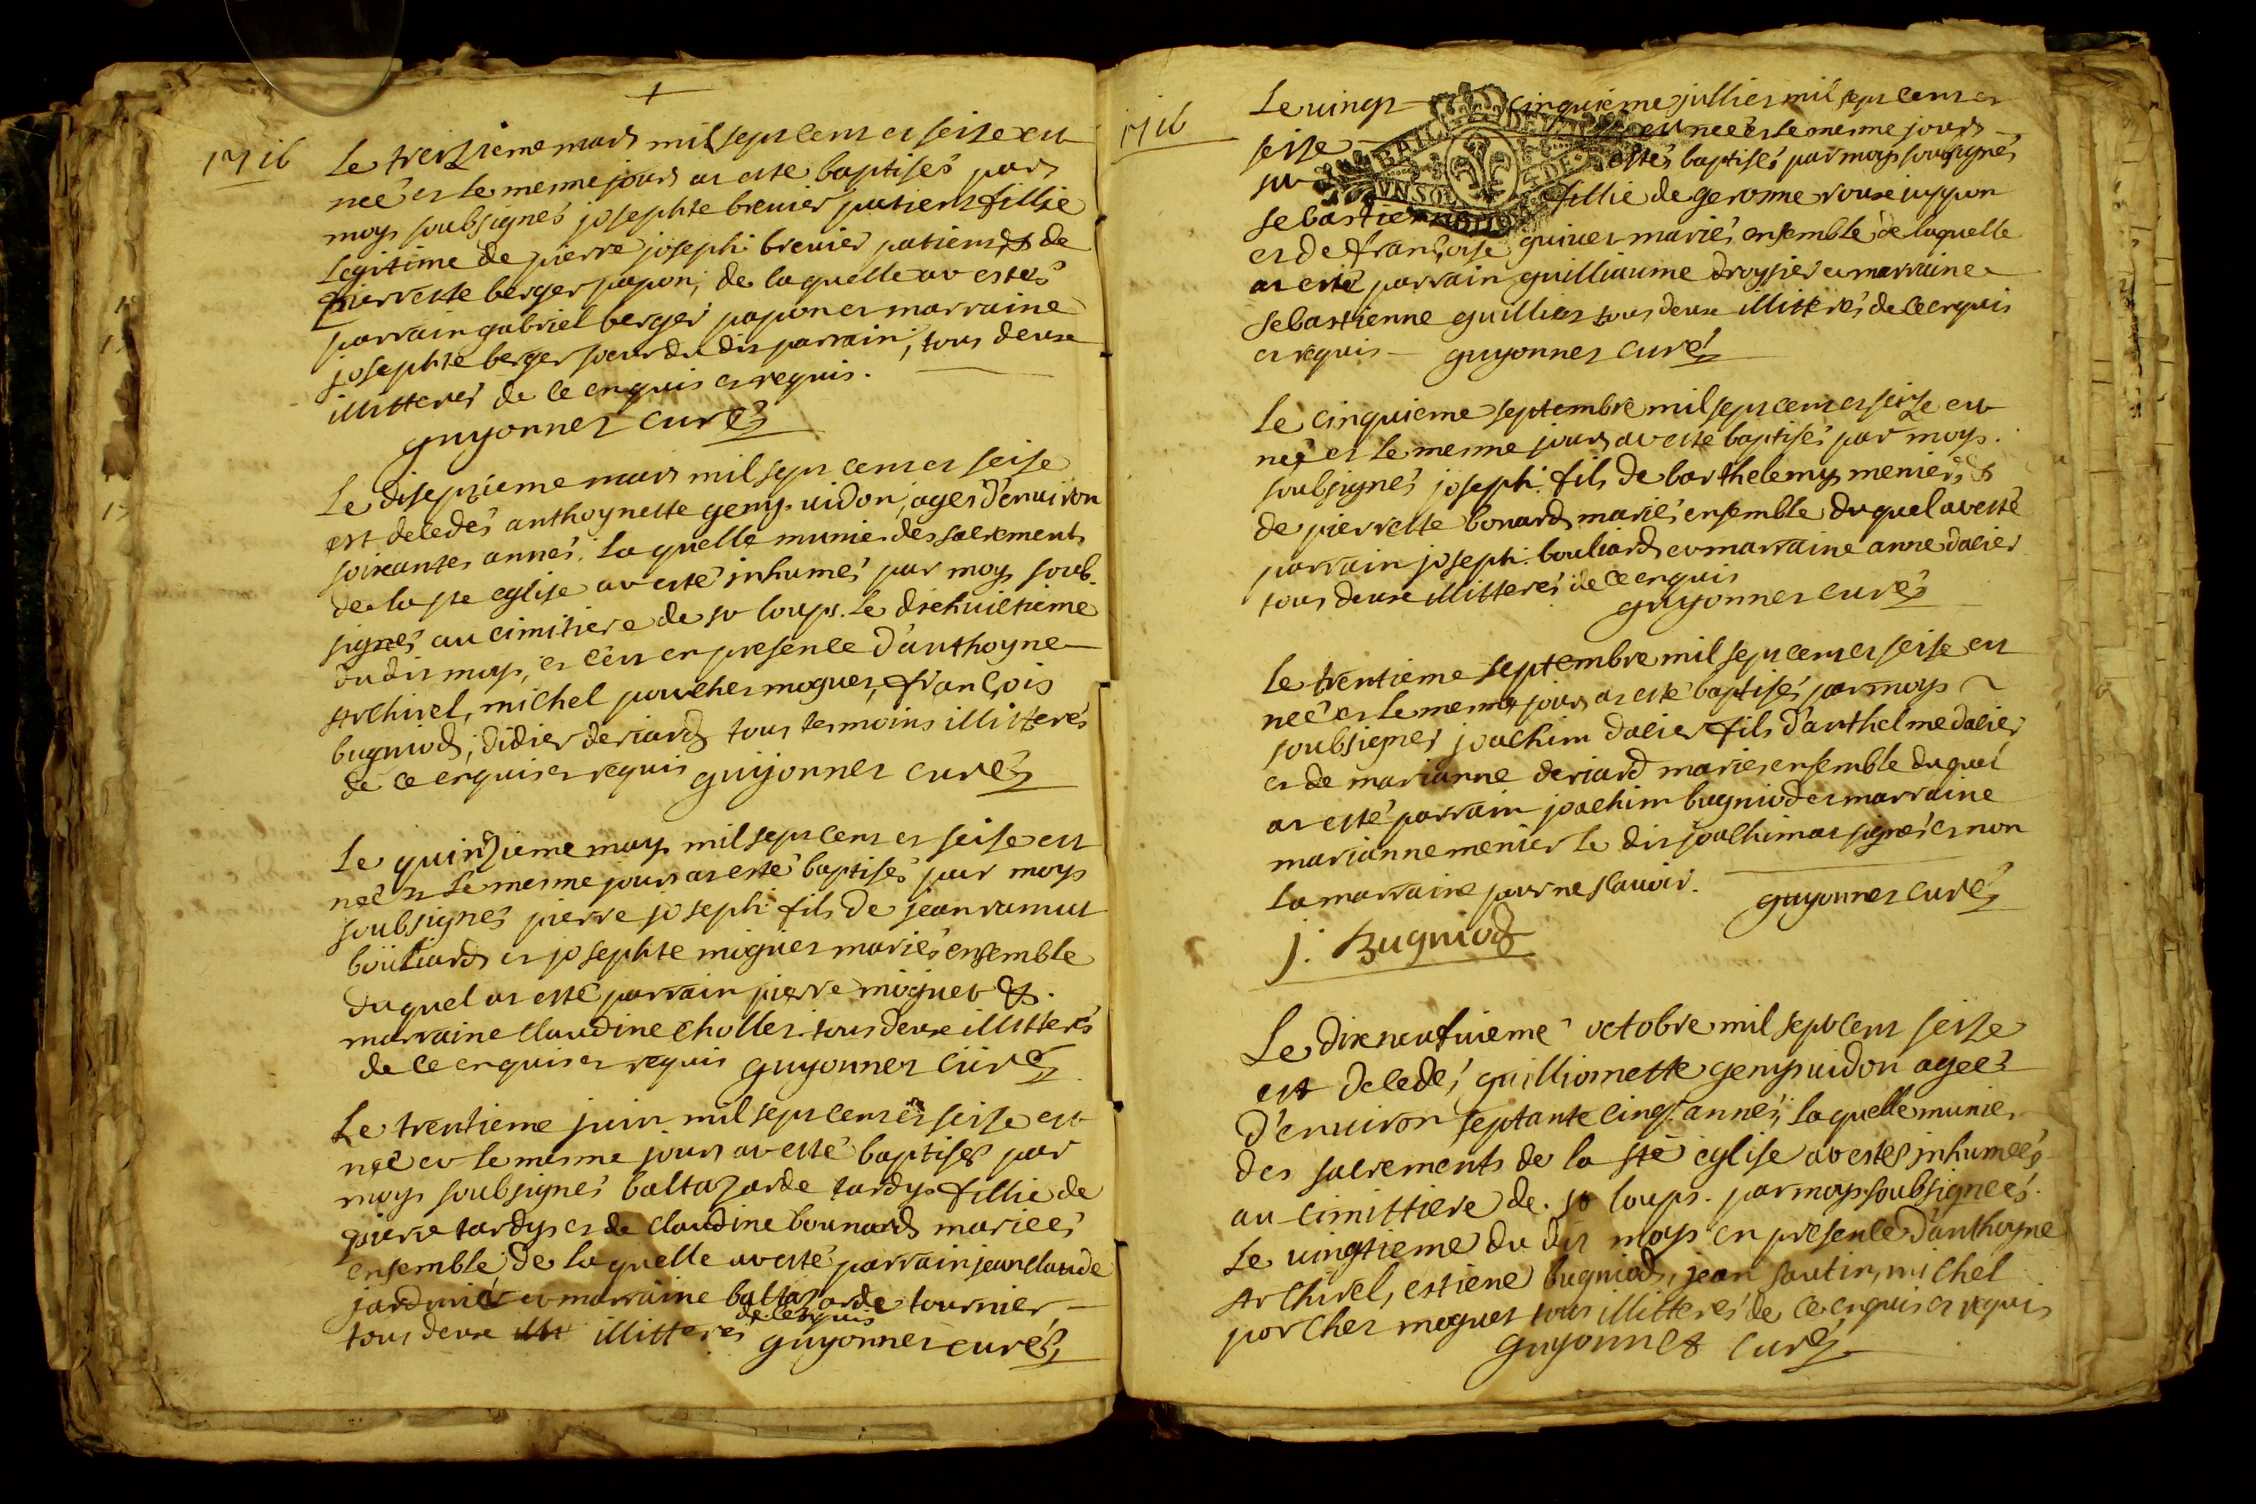 1716
Le treizieme mars mil sept cent et seise est
neé et le mesme jours at esté baptisés pars
moys soubsignés josephte brenier patient fillie
legitime de pierre joseph brenier patient & de
pierrette berger papon, de laquelle at estés
parrain gabriel berger papon et marraine
josephte berger soeur du dit parrain, tous deuse
illitterés de ce enquis et requis.
guyonnet curé
Le diseptieme mars mil sept cent et seise
est decedés anthoynette geny uidon, ages d'enuiron
soixantes annés. laquelle munie des sacrements
de la ste eglise at esté inhumés par moys soub-
signés au cimitiere de st loups. le diehuictieme
du dit moys, et c'est en presence d'anthoyne
Archirel, michel pourchet moguet, françois
bugniod, didier deriard tous tesmoins illitterés
de ce enquis et requis guyonnet curé
Le quinzieme mays mil sept cent et seise est
neé et le mesme jours at esté baptisés par moys
soubsignés pierre joseph fils de jean ramut
boüilliard et josephte miguet mariés ensemble
duquel at esté parrain pierre miguet &
marraine claudine chollet tous deuse illitterés
de ce enquis et requis guyonnet curé
Le trentieme juin mil sept cent et seise est
neé et le mesme jours at esté baptisés par
moys soubsignés baltazarde tardys fillie de
pierre tardys et de claudine bounard marieés
ensemble de laquelle at esté parrain jean claude
jardinier et marraine baltazarde tournier
tous deuse illitteres de ce enquis guyonnet curé
1716
Le uingt cinquieme jullier mil sept cent et
seise est neé et le mesme jours
estés baptisés par moys soubsignés
sebastienne fillie de gerosme rouse juppon
et de françoise guiuet mariés ensemble de laquelle
at esté parrain guilliaume droysier et marraine
sebastienne guilliot tous deuse illitterés de ce enquis
et requis guyonnet curé
Le cinquieme septembre mil sept cent et seize est
neé et le mesme jours at esté baptisés par moys
soubsignés joseph fils de barthelemy menier &
de pierrette bonard mariés ensemble duquel at esté
parrain joseph bouliard et marraine anne dalier
tous deuse illitterés de ce enquis
guyonnet curé
Le trentieme septembre mil sept cent et seise est
neé et le mesme jours at esté baptisés par moys
soubsignés joachim dalier fils d'anthelme dalier
et de marianne deriard mariés ensemble duquel
at esté parrain joachim bugniod et marraine
marianne menier le dit joachim at signés et non
la marraine pour ne scauoir. guyonnet curé
j. Bugniod
Le dix neufuieme octobre mil sept cent seize
est decedé, guilliomette geny uidon ageés
d'enuiron septante cinq annés, laquelle munie
des sacrements de la ste eglise at estés inhumeés
au cimittiere de st loups. par moys soubsigneés
le uingtieme du dit moys en presence d'anthoyne
Archirel, estiene bugniod, jean sautin, michel
porchet moguet tous illitterés de ce enquis et requis
guyonnet curé